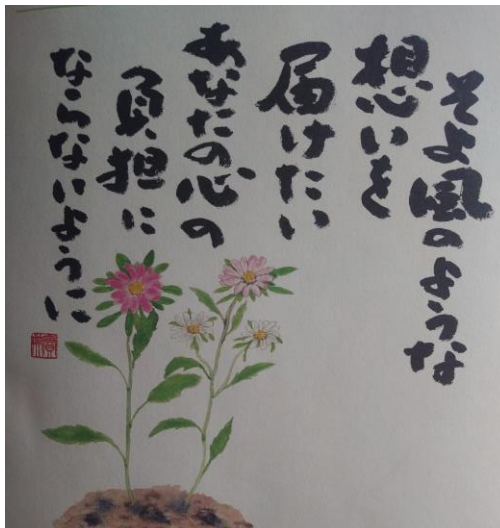 そよ風のような
想いを
届けたい
あなたの心の
負担に
ならないように